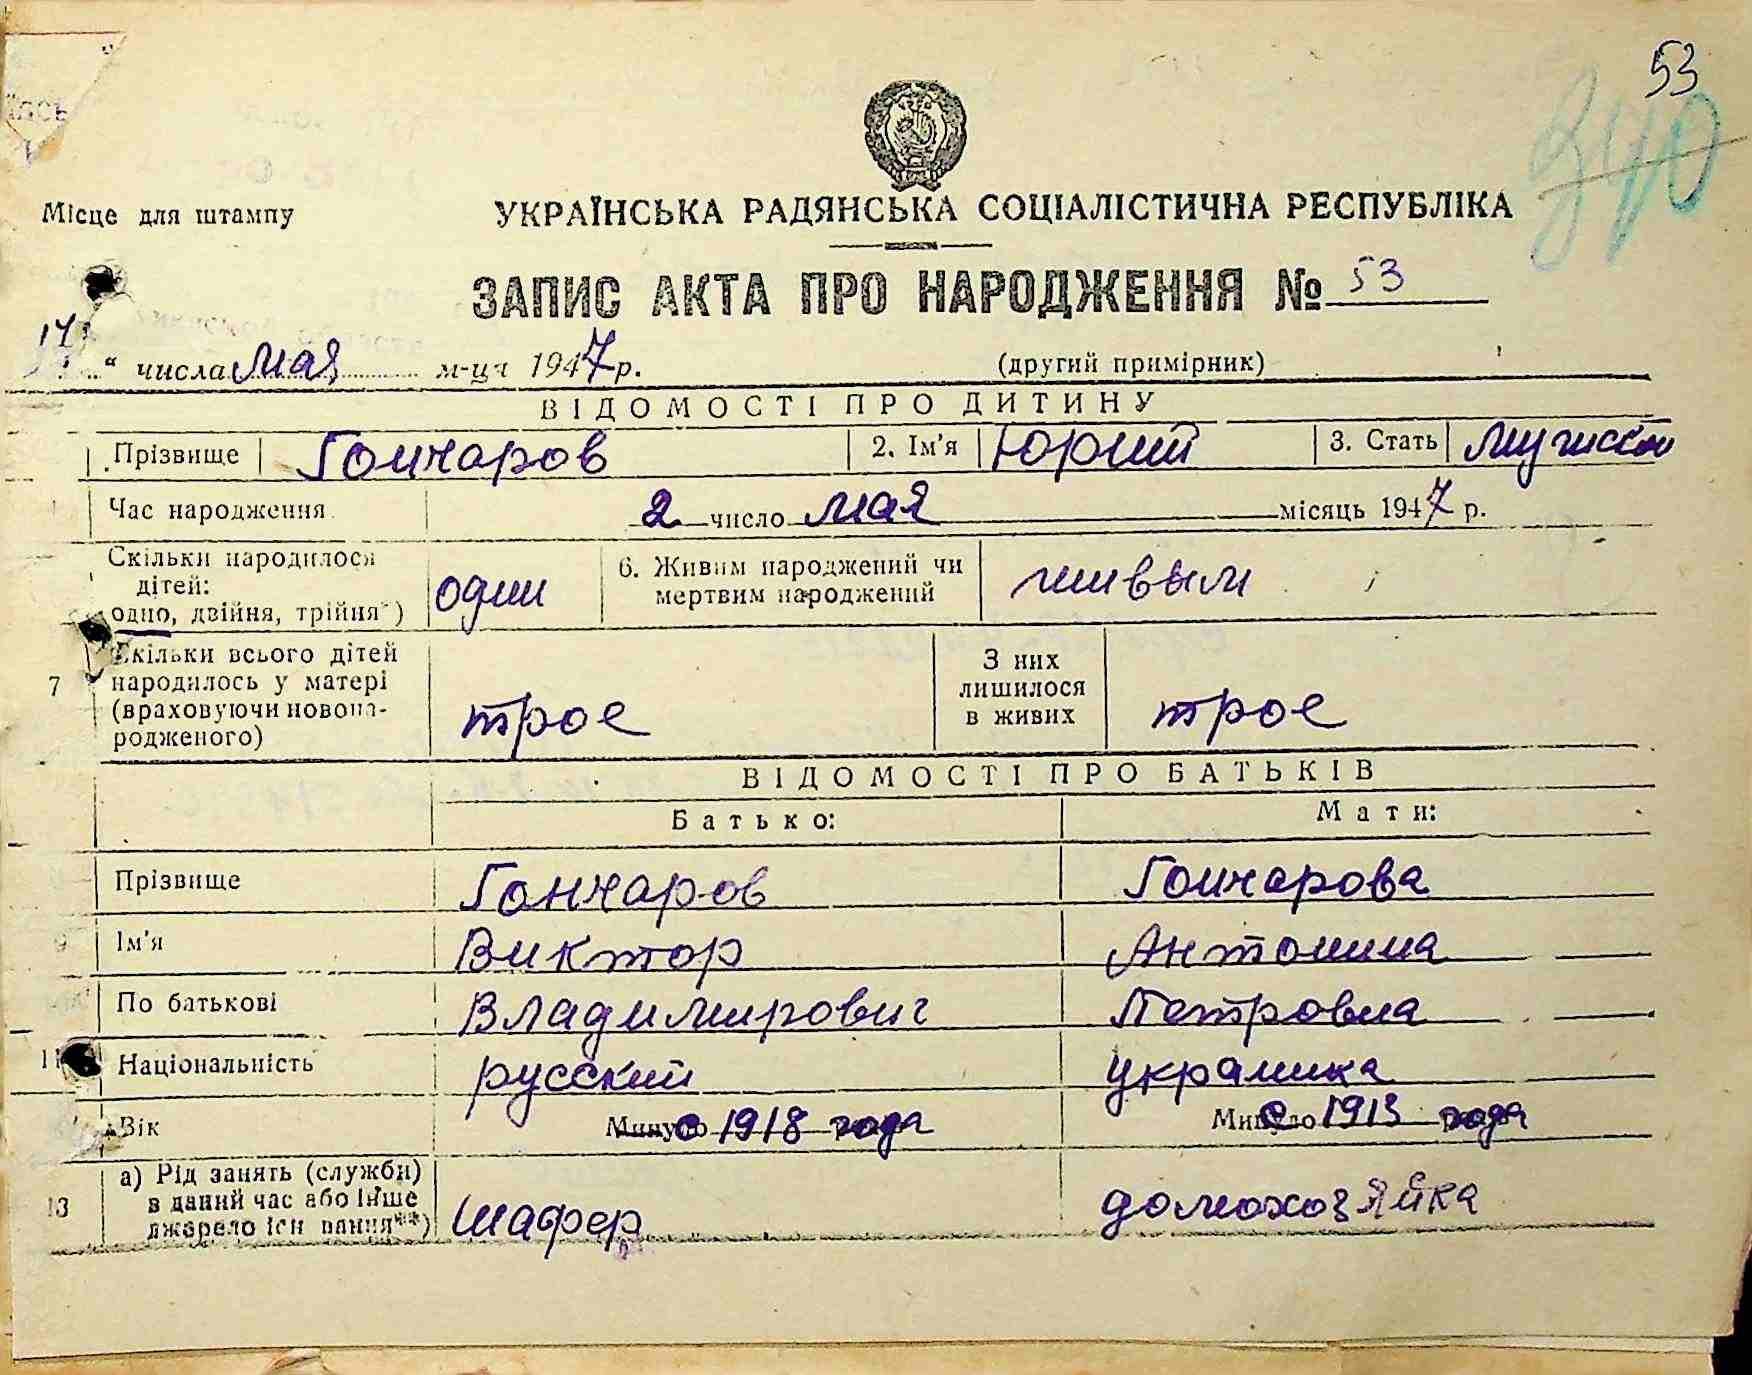 53
370
Місце для штампу
УКРАЇНСЬКА РАДЯНСЬКА СОЦІАЛІСТИЧНА РЕСПУБЛІКА
ЗАПИС АКТА ПРО НАРОДЖЕННЯ № 53
17 " числа мая м-ця 1947 р.
(другий примірник)
ВІДОМОСТІ ПРО ДИТИНУ
Прізвище Гончаров 2. Ім'я Юрий 3. Стать мужской
Час народження 2 число мая місяць 1947 р.
Скільки народилося дітей: одно, двійня, трійня*) один 6. Живим народжений чи мертвим народжений живым
7 Скільки всього дітей народилось у матері (враховуючи новона-родженого) трое З них лишилося в живих трое
ВІДОМОСТІ ПРО БАТЬКІВ
Батько: Мати:
Прізвище Гончаров Гончарова
9 Ім'я Виктор Антонина
По батькові Владимирович Петровна
11 Національність русский украинка
Вік Минуло с 1918 года Минуло с 1913 года
13 а) Рід занять (служби) в даний час або інше джерело існування**) шафер домохозяйка